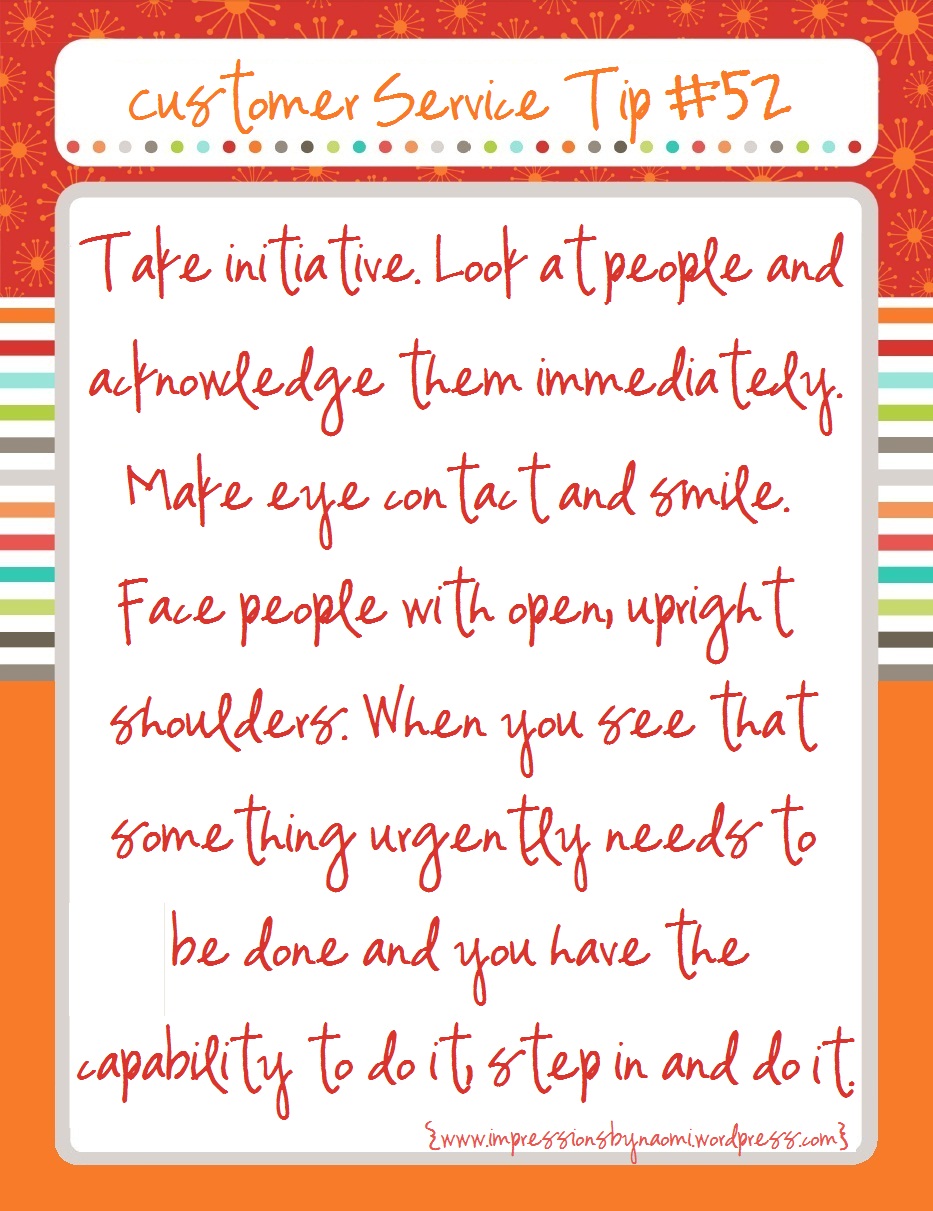 customer Service Tip #52
Take initiative. Look at people and
acknowledge them immediately.
Make eye contact and smile.
Face people with open, upright
shoulders. When you see that
something urgently needs to
be done and you have the
capability to do it, step in and do it.
{www.impressionsbynaomi.wordpress.com}